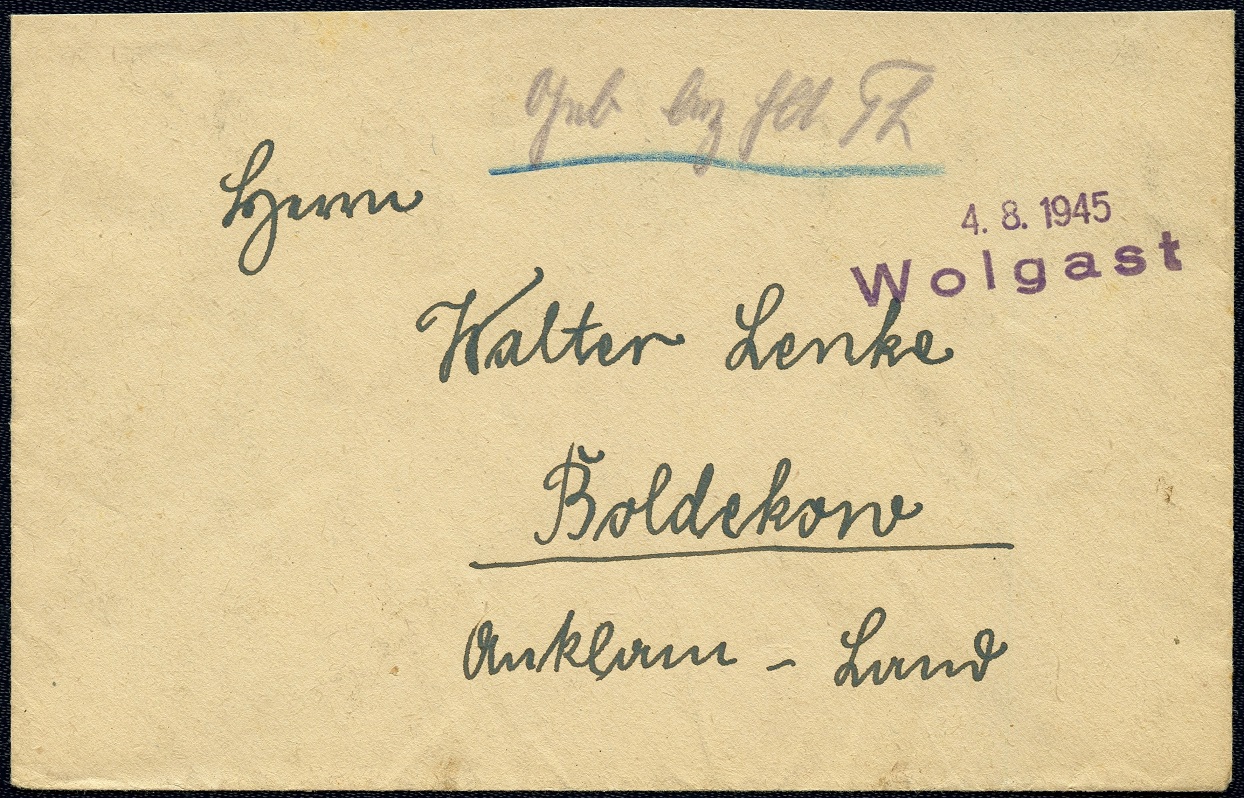 Herrn
4. 8. 1945
Wolgast
Walter Lenke
Boldekow
Anklam - Land